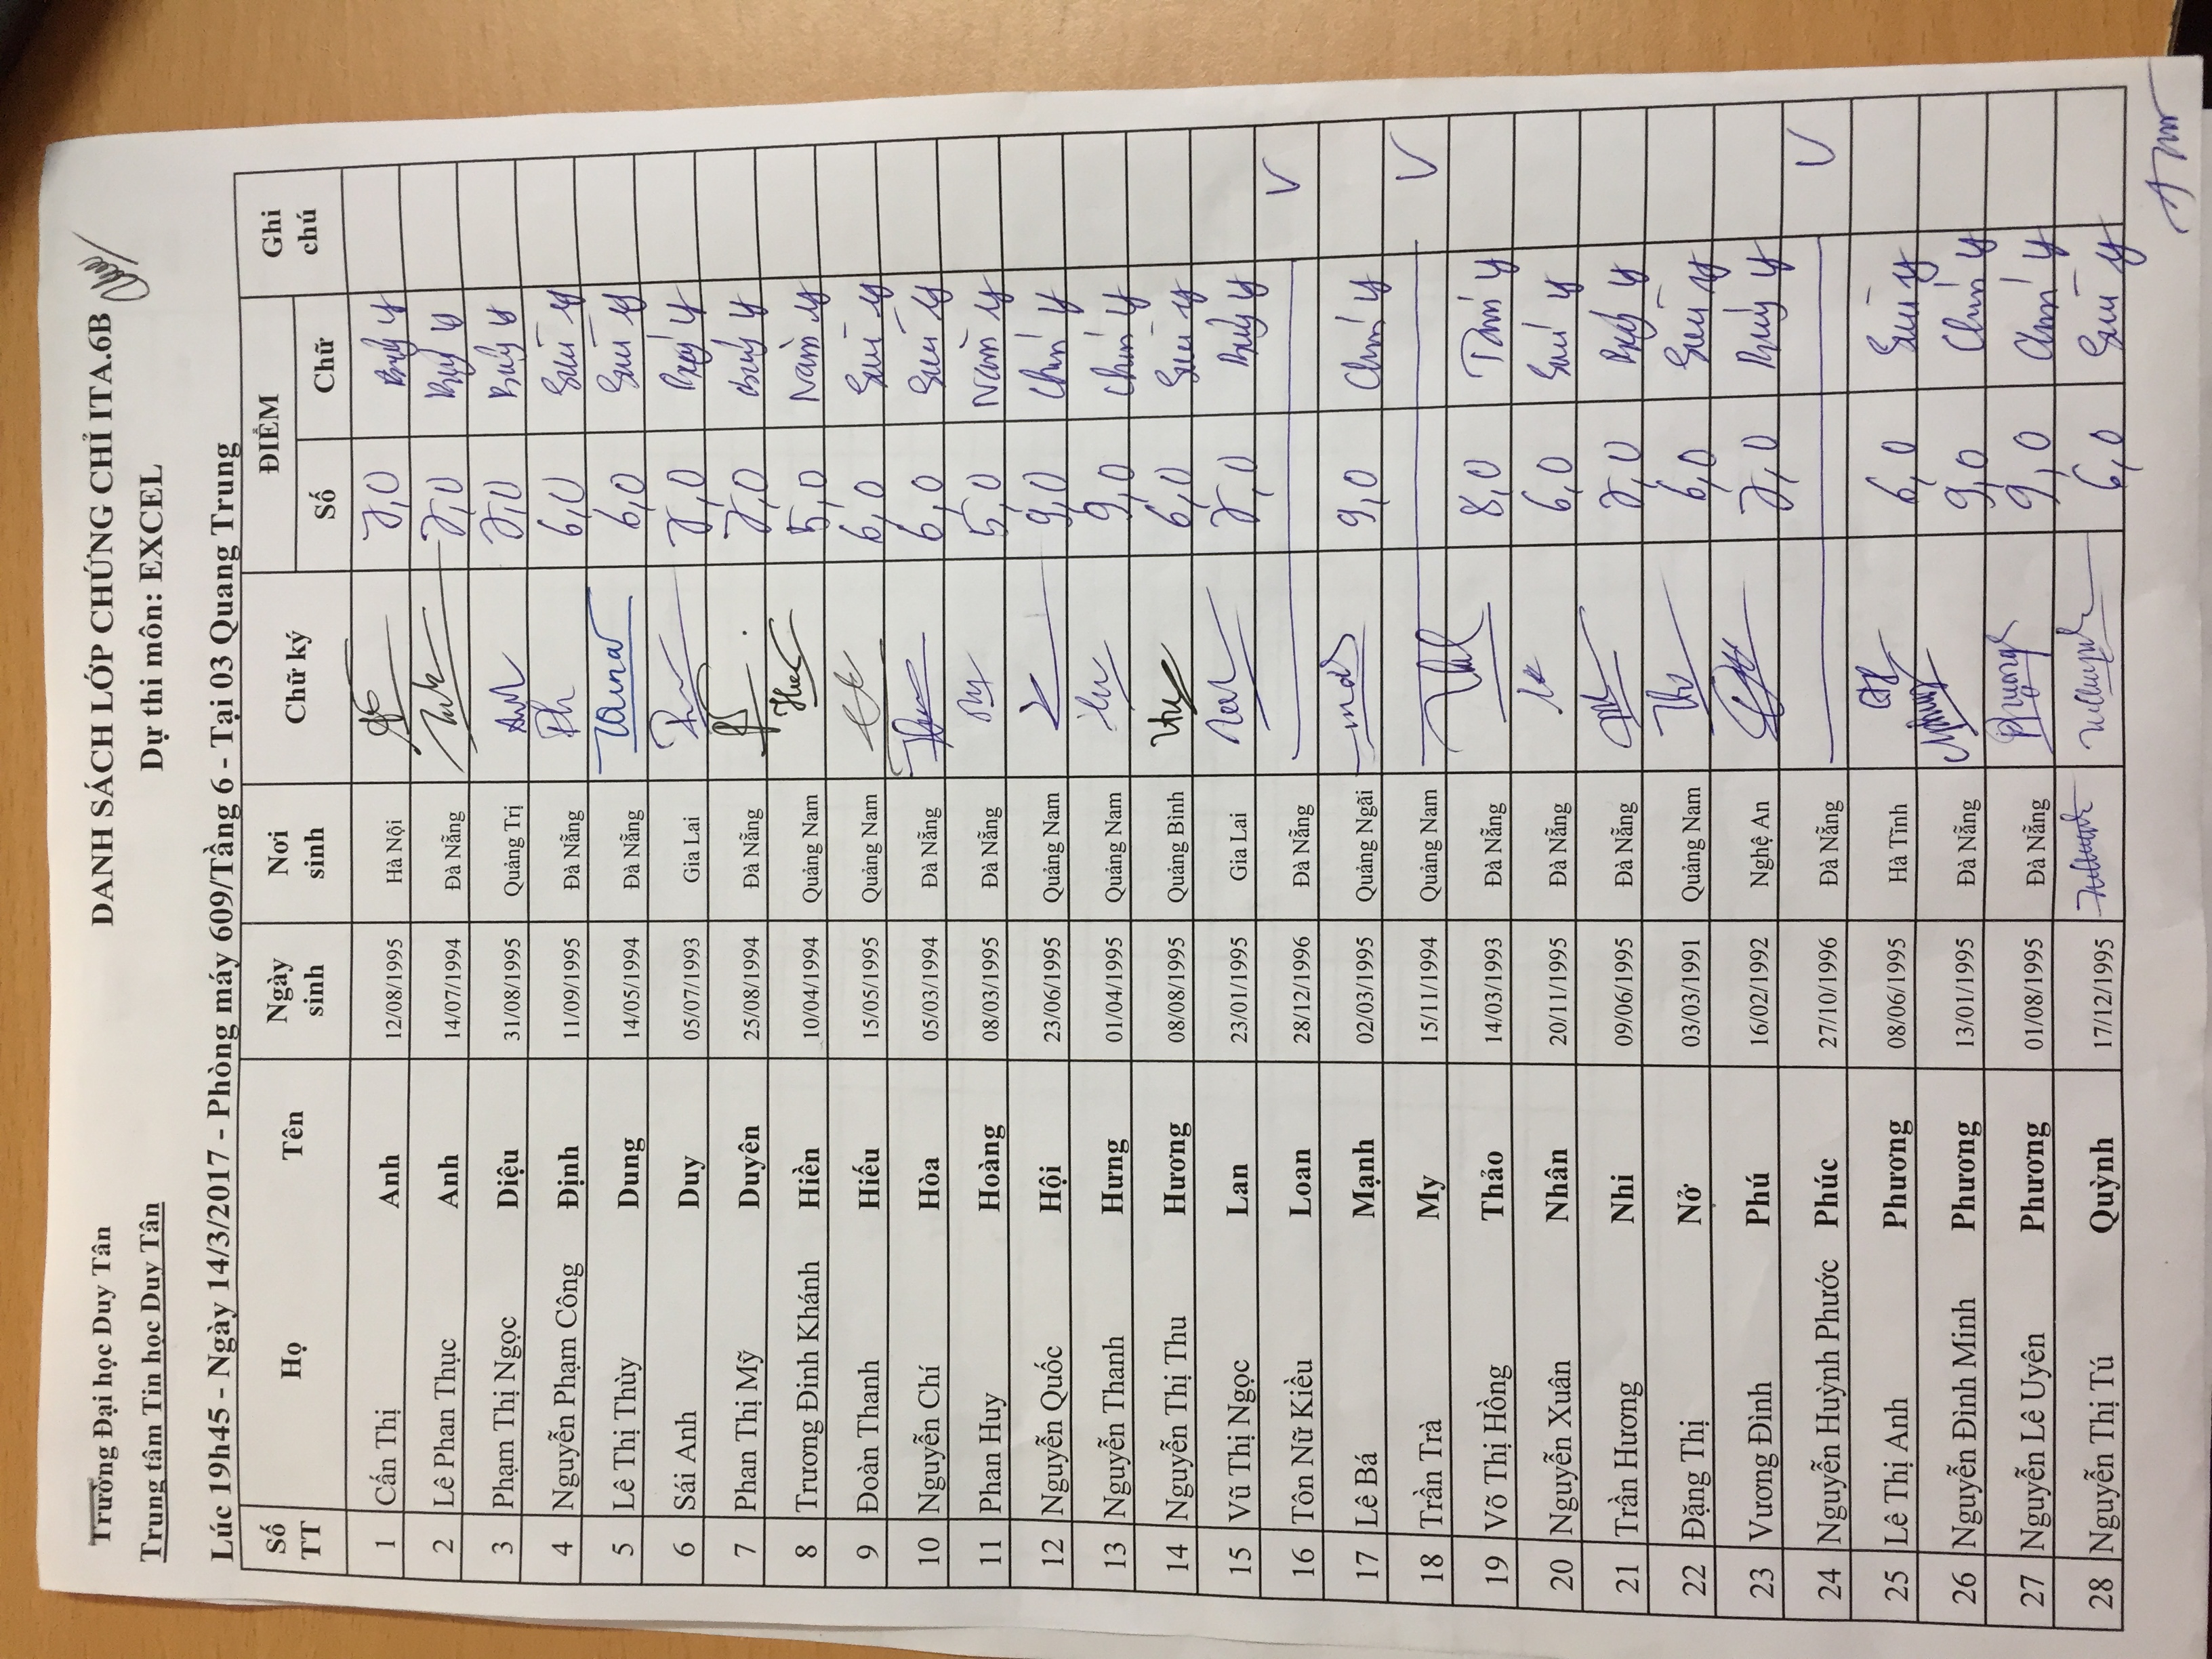 Trường Đại học Duy Tân DANH SÁCH LỚP CHỨNG CHỈ ITA.6B
Trung tâm Tin học Duy Tân Dự thi môn: EXCEL
Lúc 19h45 - Ngày 14/3/2017 - Phòng máy 609/Tầng 6 - Tại 03 Quang Trung
Số TT Họ Tên Ngày sinh Nơi sinh Chữ ký ĐIỂM Số Chữ Ghi chú
1 Cấn Thị Anh 12/08/1995 Hà Nội 7,0 Bảy y
2 Lê Phan Thục Anh 14/07/1994 Đà Nẵng 7,0 Bảy y
3 Phạm Thị Ngọc Diệu 31/08/1995 Quảng Trị 7,0 Bảy y
4 Nguyễn Phạm Công Định 11/09/1995 Đà Nẵng 6,0 Sáu y
5 Lê Thị Thùy Dung 14/05/1994 Đà Nẵng 6,0 Sáu y
6 Sái Anh Duy 05/07/1993 Gia Lai 7,0 Bảy y
7 Phan Thị Mỹ Duyên 25/08/1994 Đà Nẵng 7,0 Bảy y
8 Trương Đinh Khánh Hiền 10/04/1994 Quảng Nam 5,0 Năm y
9 Đoàn Thanh Hiếu 15/05/1995 Quảng Nam 6,0 Sáu y
10 Nguyễn Chí Hòa 05/03/1994 Đà Nẵng 6,0 Sáu y
11 Phan Huy Hoàng 08/03/1995 Đà Nẵng 5,0 Năm y
12 Nguyễn Quốc Hội 23/06/1995 Quảng Nam 9,0 Chín y
13 Nguyễn Thanh Hưng 01/04/1995 Quảng Nam 9,0 Chín y
14 Nguyễn Thị Thu Hương 08/08/1995 Quảng Bình 6,0 Sáu y
15 Vũ Thị Ngọc Lan 23/01/1995 Gia Lai 7,0 Bảy y
16 Tôn Nữ Kiều Loan 28/12/1996 Đà Nẵng V
17 Lê Bá Mạnh 02/03/1995 Quảng Ngãi 9,0 Chín y
18 Trần Trà My 15/11/1994 Quảng Nam V
19 Võ Thị Hồng Thảo 14/03/1993 Đà Nẵng 8,0 Tám y
20 Nguyễn Xuân Nhân 20/11/1995 Đà Nẵng 6,0 Sáu y
21 Trần Hương Nhi 09/06/1995 Đà Nẵng 7,0 Bảy y
22 Đặng Thị Nở 03/03/1991 Quảng Nam 6,0 Sáu y
23 Vương Đình Phú 16/02/1992 Nghệ An 7,0 Bảy y
24 Nguyễn Huỳnh Phước Phúc 27/10/1996 Đà Nẵng V
25 Lê Thị Anh Phương 08/06/1995 Hà Tĩnh 6,0 Sáu y
26 Nguyễn Đình Minh Phương 13/01/1995 Đà Nẵng 9,0 Chín y
27 Nguyễn Lê Uyên Phương 01/08/1995 Đà Nẵng Phương 9,0 Chín y
28 Nguyễn Thị Tú Quỳnh 17/12/1995 6,0 Sáu y